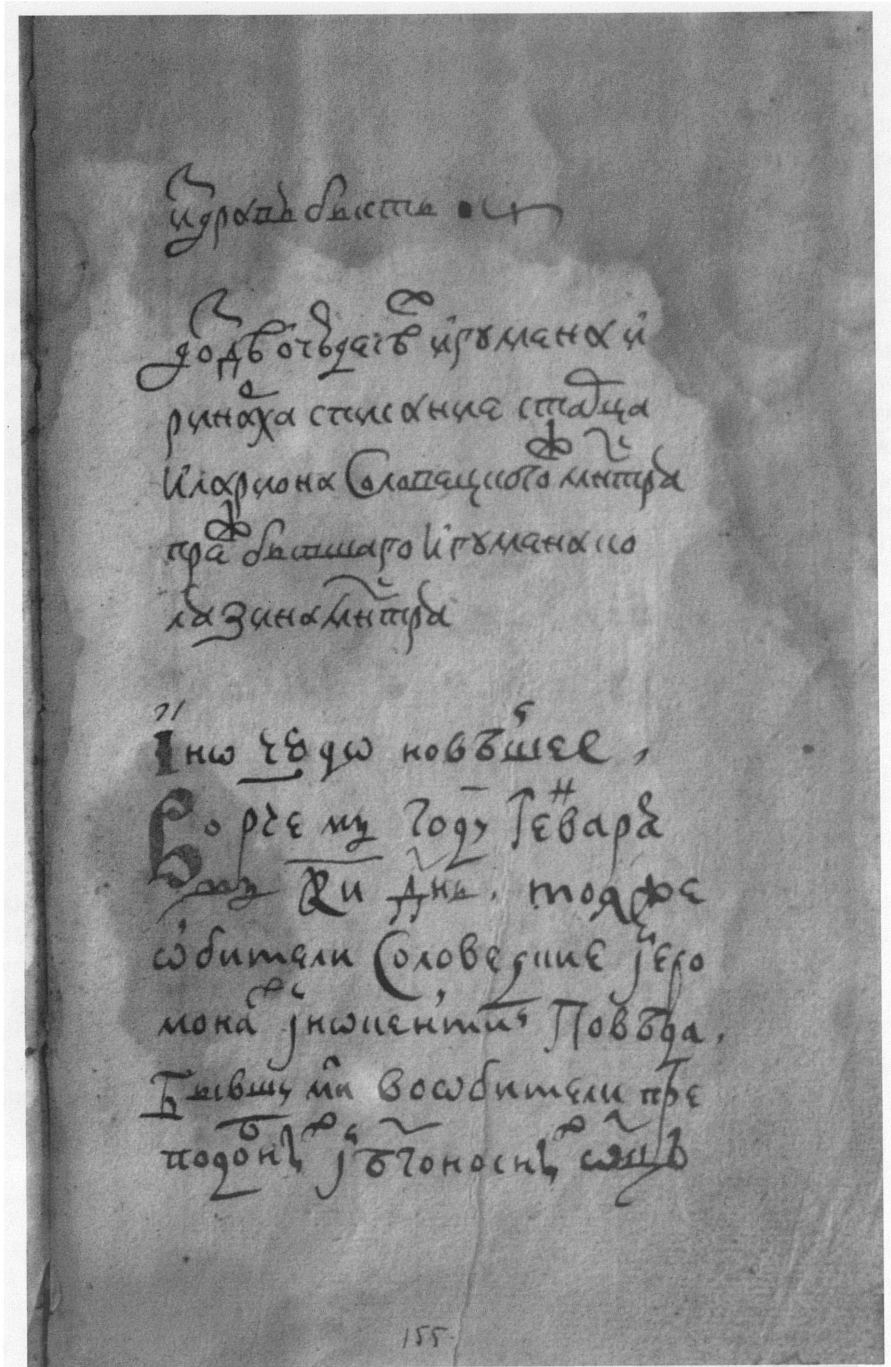 и҆здравъ бысть
до двѣ ѻ҆ чюдесѣ и҆гумена и҆
ринаⷯха списание стаⷬца
Илариона Соловецкогⷪ мн҃тря
преⷤ бывшаго Игумена ко
лязина мн҃тря
Інѡ чꙋдѡ новѣⷨшее,
Во рчемъ году Генⷩварѧ
въ ки днь. тояже
ѡ҆бители Соловецкие і҆еро
монаⷯ і҆нѡкентиⷤ Повѣда,
Бывшу ми во ѡбители пре
подоⷠныⷯ і҆ бг҃оносныⷯ ѡц҃ъ
155